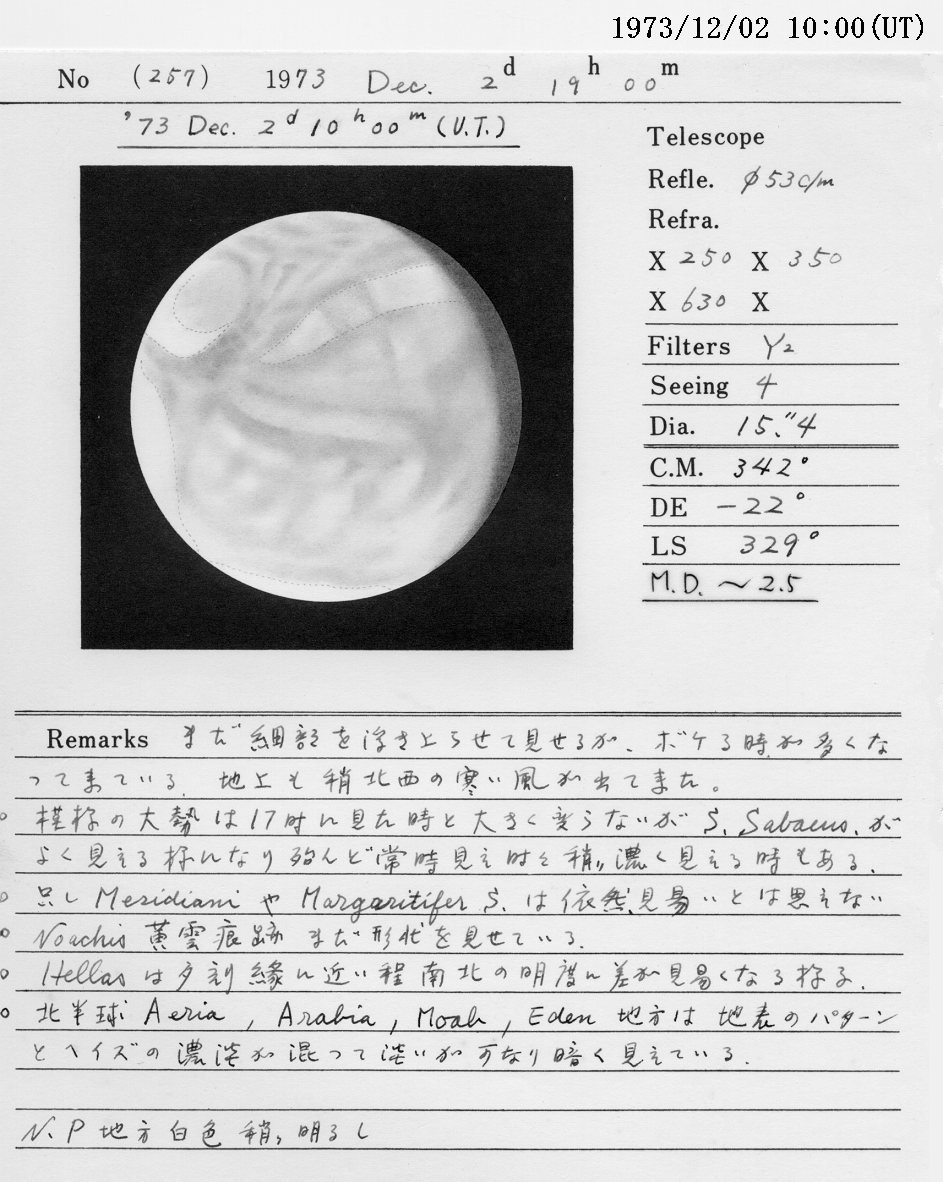 1973/12/02 10:00(UT)
No (257) 1973 Dec. 2d 19h 00m
'73 Dec. 2d 10h 00m (U.T.)
Telescope
Refle. φ53c/m
Refra.
X 250 X 350
X 630 X
Filters Y2
Seeing 4
Dia. 15."4
C.M. 342°
DE -22°
LS 329°
M.D. ~2.5
Remarks まだ細部を浮き上らせて見せるが、ボケる時が多くな
って来ている。地上も稍北西の寒い風が出てきた。
模様の大勢は17時に見た時と大きく変らないが S. Sabaeus. が
よく見える様になり殆んど常時見え時々稍々濃く見える時もある.
只し Meridiani や Margaritifer S. は依然見易いとは思えない
Noachis 黄雲痕跡 まだ形状を見せている.
Hellas は夕刻縁に近い程南北の明度に差が見易くなる様る.
北半球 Aeria, Arabia, Moab, Eden 地方は地表のパターン
とヘイズの濃淡が混って淡いが可なり暗く見えている.
N.P 地方白色稍々明るし